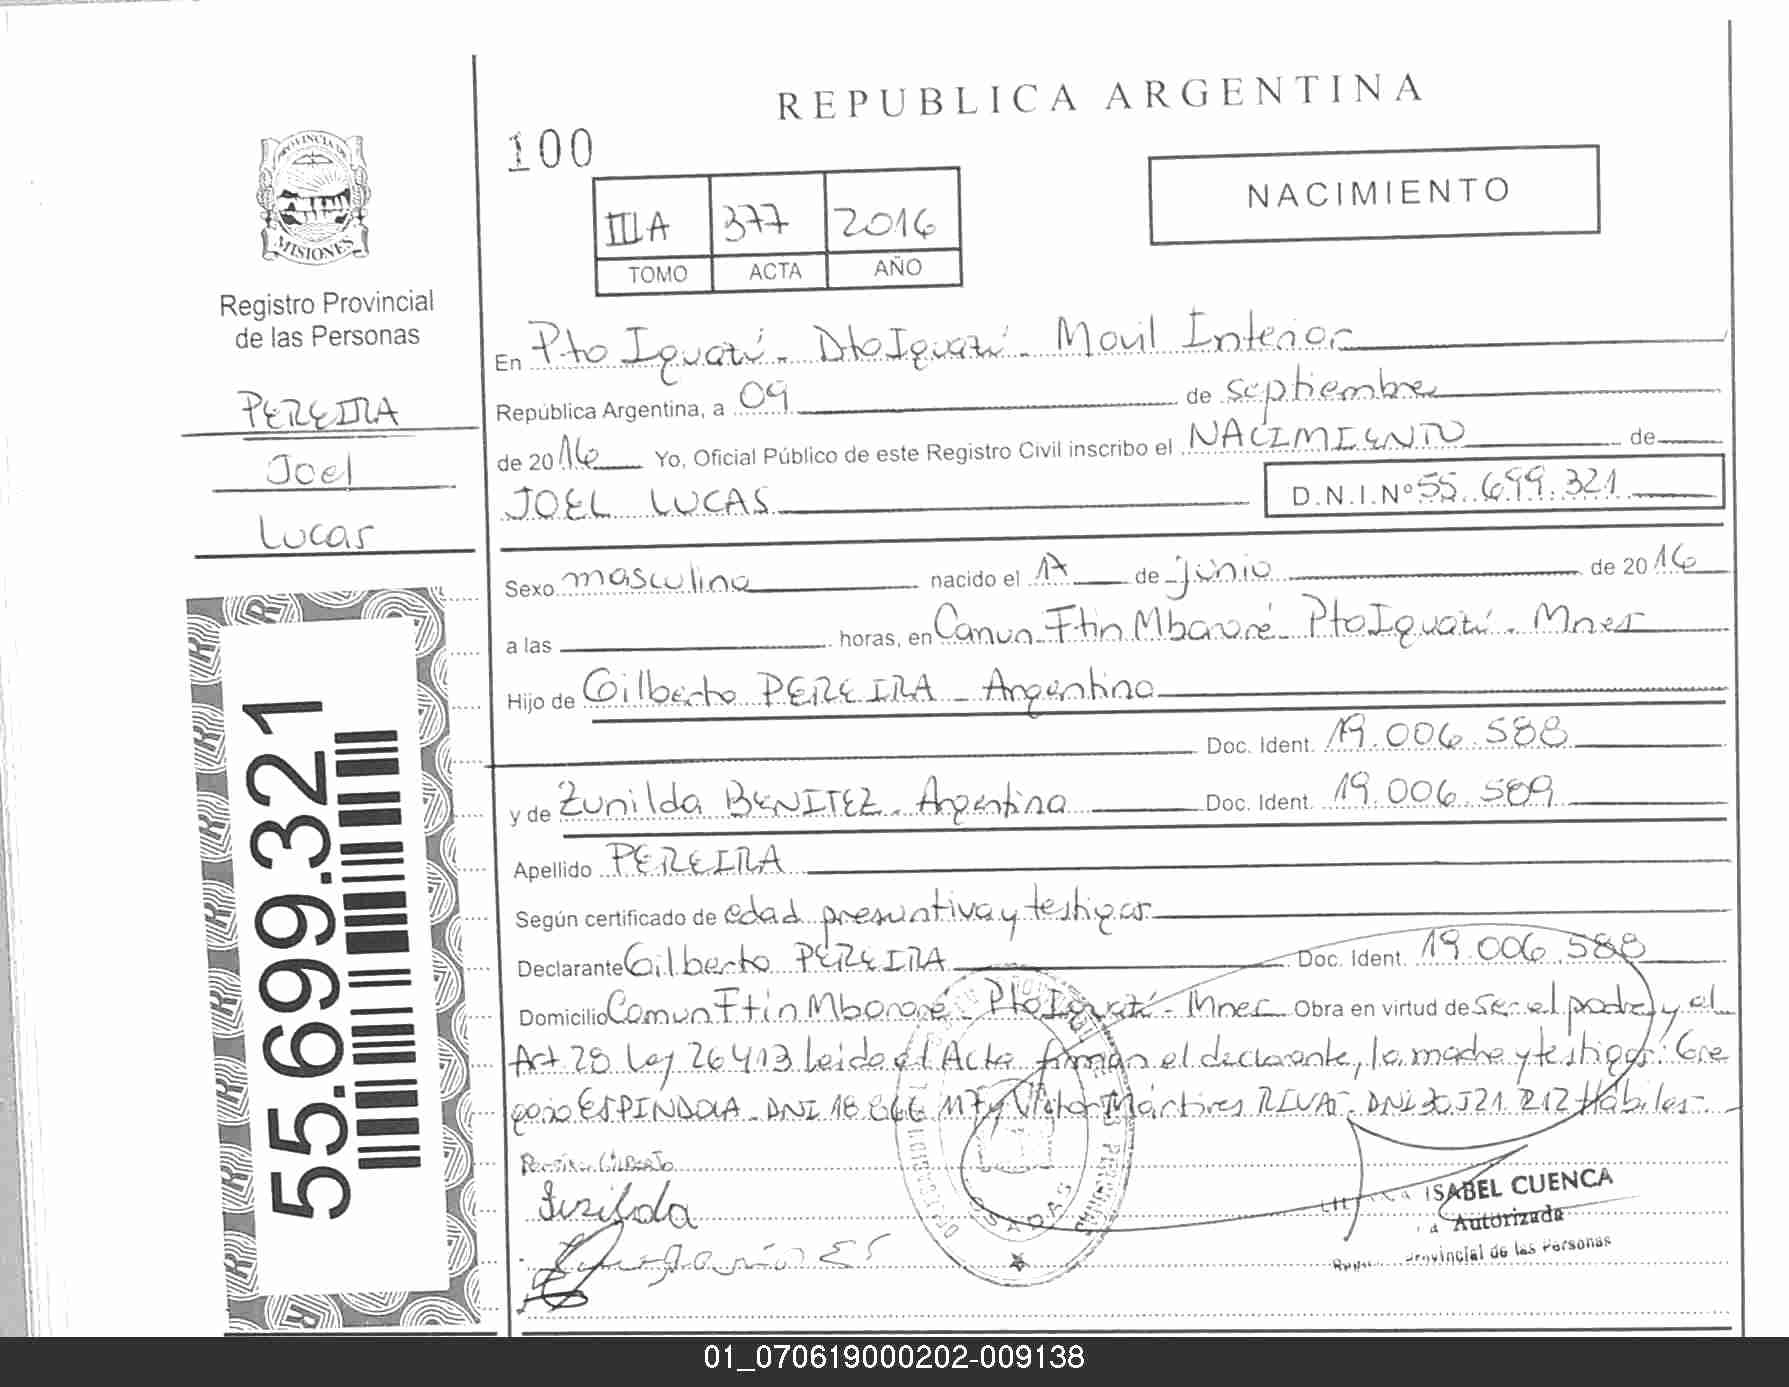 REPUBLICA ARGENTINA
100
NACIMIENTO
IIIA 377 2016
TOMO ACTA AÑO
PROVINCIA DE
MISIONES
Registro Provincial
de las Personas
PEREIRA
Joel
Lucas
55.699.321
En Pto Iguazú. Dto Iguazú. Movil Interior
República Argentina, a 09 de septiembre
de 2016 Yo, Oficial Público de este Registro Civil inscribo el NACIMIENTO de
JOEL LUCAS D.N.I.Nº 55.699.321
Sexo masculino nacido el 17 de junio de 2016
a las horas, en Comun. Ftin Mbororé Pto Iguazú. Mnes
Hijo de Gilberto PEREIRA - Argentino
Doc. Ident. 19.006.588
y de Zunilda BENITEZ. Argentina Doc. Ident. 19.006.589
Apellido PEREIRA
Según certificado de edad presuntiva y testigos
Declarante Gilberto PEREIRA Doc. Ident. 19.006.588
Domicilio Comun Ftin Mbororé Pto Iguazú - Mnes Obra en virtud de ser el padre y el
Art 28 Ley 26413 leido el Acta firman el declarante, la madre y testigos: Gre
gorio ESPINDOLA. DNI 18.866.117 y Victor Mártires RIVAS. DNI 30.521.212 Hábiles.
GILBERTO
ISABEL CUENCA
Autorizada
Provincial de las Personas
POSADAS
01_070619000202-009138